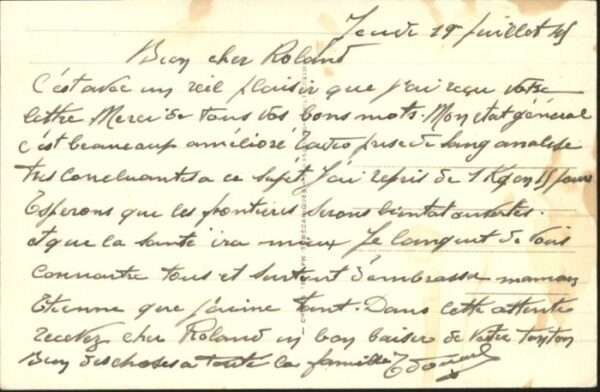 Jeudi 19 juillet 45
Bien cher Roland
C'est avec un réel plaisir que j'ai reçu votre
lettre Merci de tous vos bons mots. Mon etat général
c'est beaucoup amélioré prise de sang analise
tres concluantes a ce sujet. J'ai repris de 1 Kg en 15 jours
Esperons que les frontieres serons bientot ouvertes.
et que la santé ira mieux Je languit de vous
connaitre tous et surtout d'embrasser maman
Etienne que j'aime tant. Dans cette attente
recevez cher Roland un bon baiser de votre tonton
Bien des choses a toute la famille Edouard